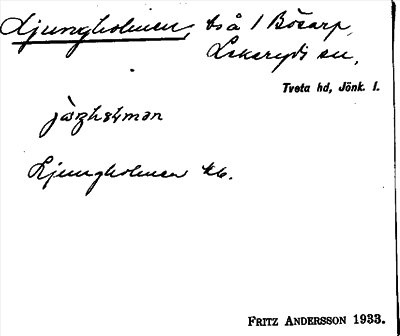 Ljungholmen, bs å 1 Bösarp,
Lekeryds sn,
Tveta hd, Jönk. l.
Ljungholmen
FRITZ ANDERSSON 1933.